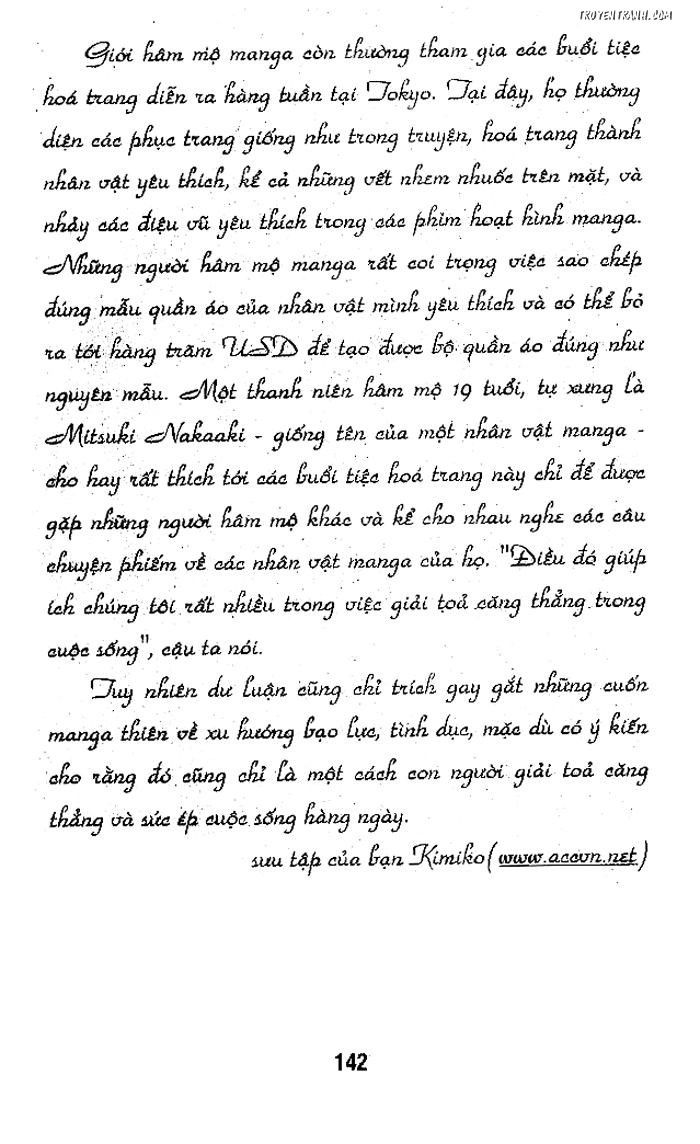 TRUYENTRANH.COM
Giới hâm mộ manga còn thường tham gia các buổi tiệc
hoá trang diễn ra hàng tuần tại Tokyo. Tại đây, họ thường
diện các phục trang giống như trong truyện, hoá trang thành
nhân vật yêu thích, kể cả những vết nhem nhuốc trên mặt, và
nhảy các điệu vũ yêu thích trong các phim hoạt hình manga.
Những người hâm mộ manga rất coi trọng việc sao chép
đúng mẫu quần áo của nhân vật mình yêu thích và có thể bỏ
ra tới hàng trăm USD để tạo được bộ quần áo đúng như
nguyên mẫu. Một thanh niên hâm mộ 19 tuổi, tự xưng là
Mitsuki Nakaaki - giống tên của một nhân vật manga -
cho hay rất thích tới các buổi tiệc hoá trang này chỉ để được
gặp những người hâm mộ khác và kể cho nhau nghe các câu
chuyện phiếm về các nhân vật manga của họ. "Điều đó giúp
ích chúng tôi rất nhiều trong việc giải toả căng thẳng trong
cuộc sống", cậu ta nói.
Tuy nhiên dư luận cũng chỉ trích gay gắt những cuốn
manga thiên về xu hướng bạo lực, tình dục, mặc dù có ý kiến
cho rằng đó cũng chỉ là một cách con người giải toả căng
thẳng và sức ép cuộc sống hàng ngày.
sưu tập của bạn Kimiko(www.accvn.net)
142